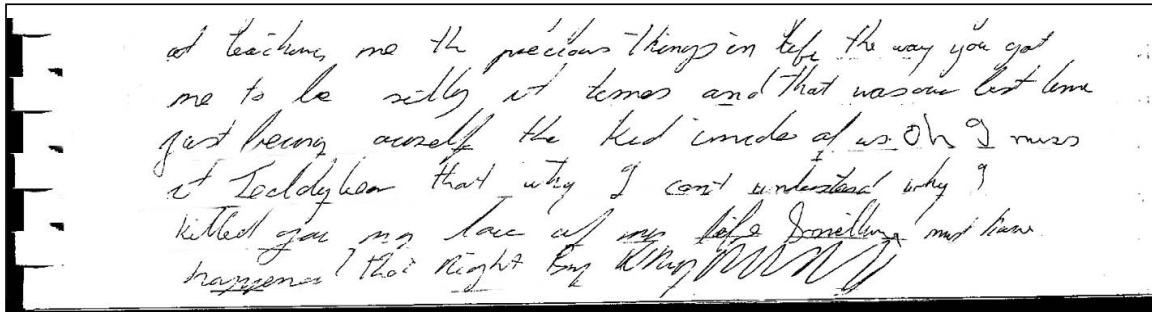 at teaching me th precious things in life the way you got
me to be silly at times and that was our best time
just being ourself the kid inside of us Oh I miss
it Teddybear that why I can't understand why I
killed you my love of my life Something must have
happened that night